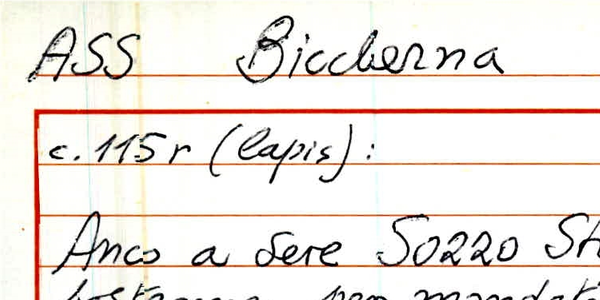 ASS Biccherna
c. 115 r (lapis):
Anco a Sere Sozzo St